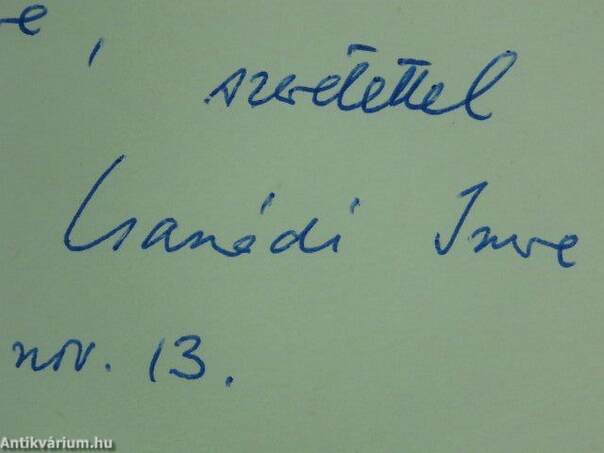 e,
szeretettel
Csanádi Imre
nov. 13.
Antikvárium.hu